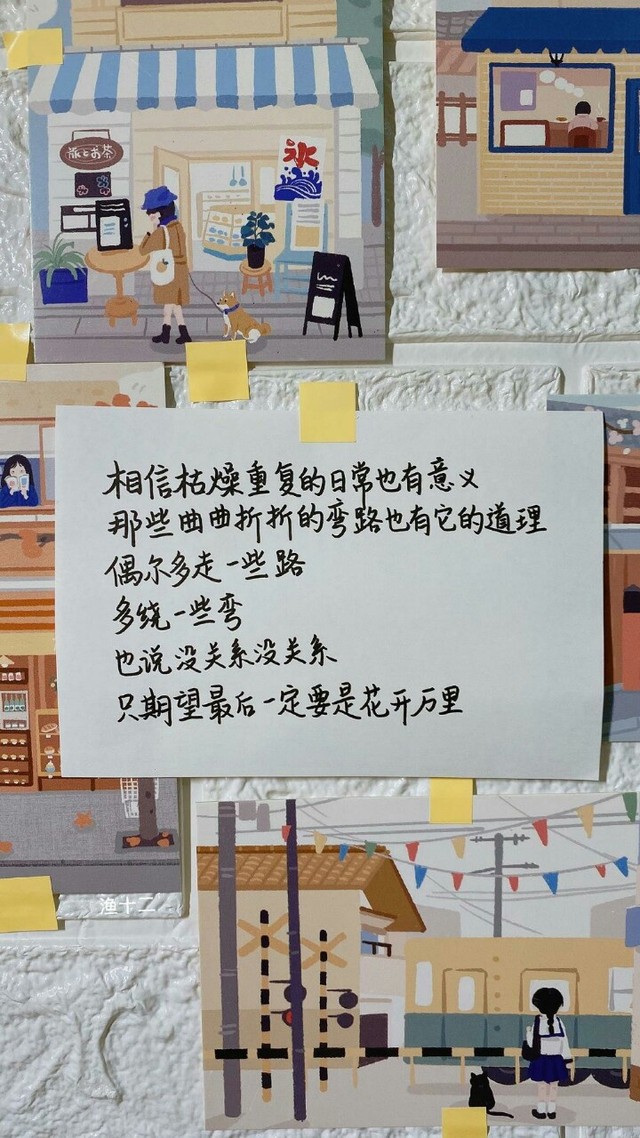 旅とお茶
氷
相信枯燥重复的日常也有意义
那些曲曲折折的弯路也有它的道理
偶尔多走一些路
多绕一些弯
也说没关系没关系
只期望最后一定要是花开万里
渔十二